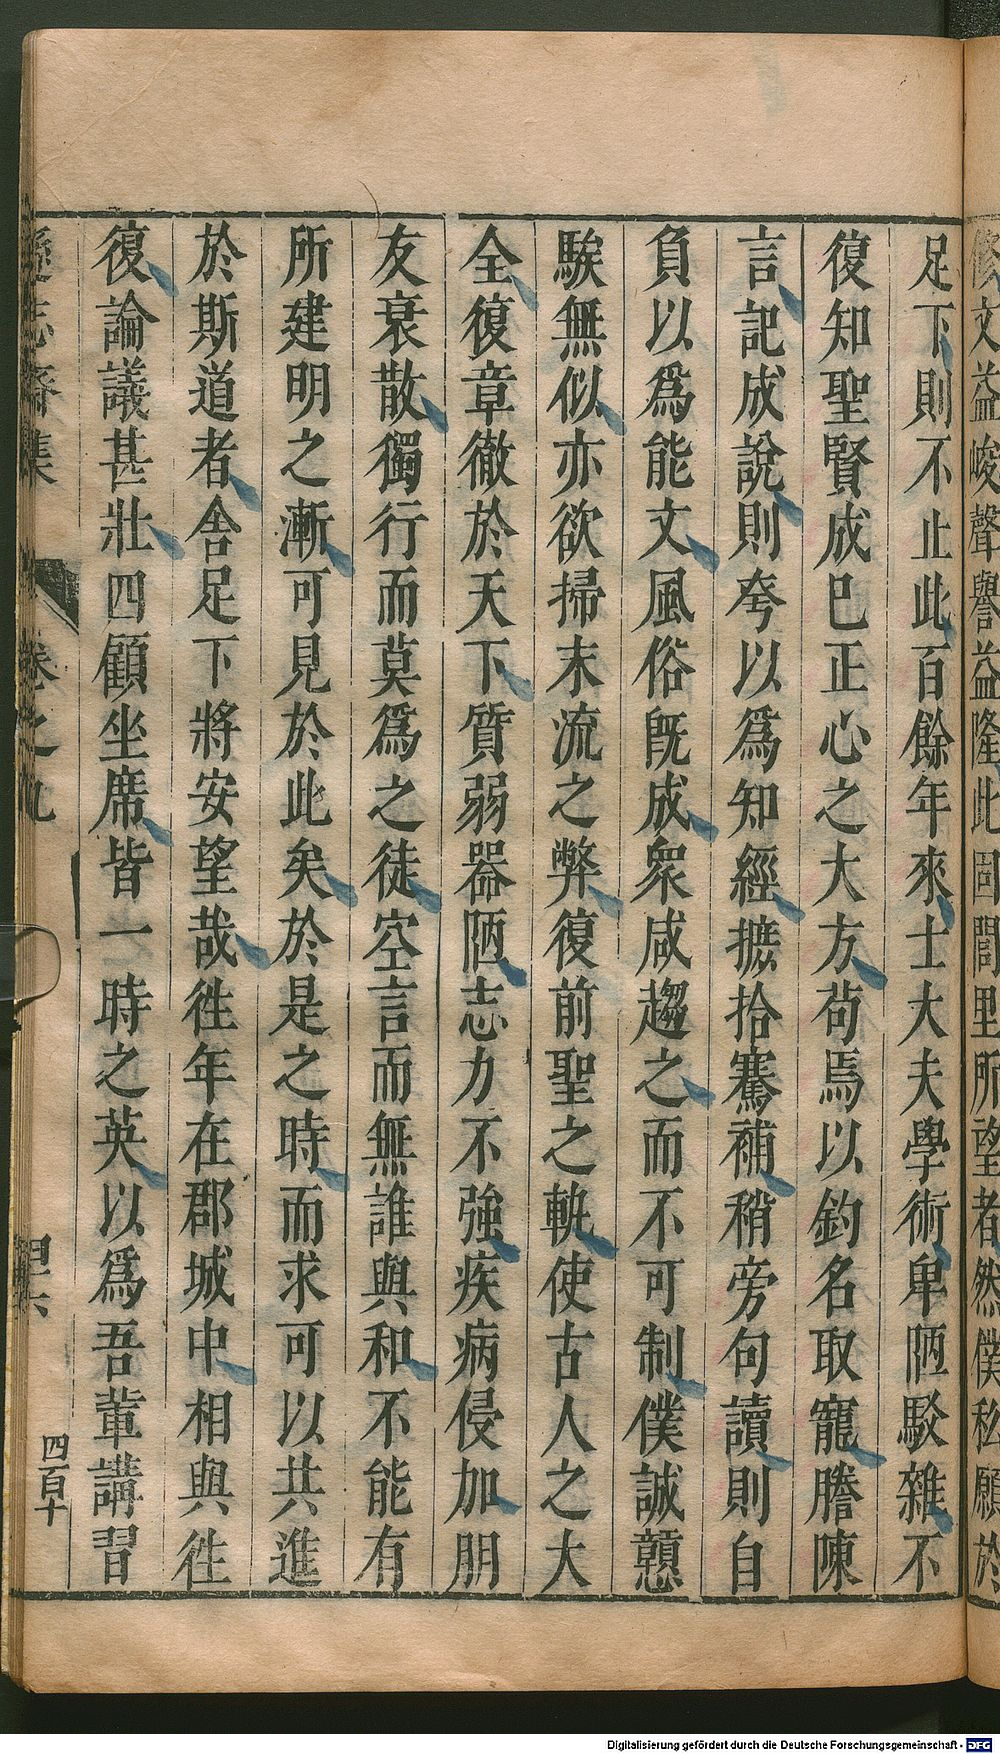 文益峻聲譽益隆此固閭里所望者然僕私願於
足下則不止此百餘年來士大夫學術卑陋駁雜不
復知聖賢成已正心之大方苟焉以釣名取寵謄陳
言記成說則夸以爲知經摭拾騫補稍旁句讀則自
負以爲能文風俗旣成衆咸趨之而不可制僕誠戇
騃無似亦欲掃末流之弊復前聖之軌使古人之大
全復章徹於天下質弱器陋志力不強疾病侵加朋
友衰散獨行而莫爲之徒空言而無誰與和不能有
所建明之漸可見於此矣於是之時而求可以共進
於斯道者舍足下將安望哉徃年在郡城中相與徃
復論議甚壯四顧坐席皆一時之英以爲吾輩講習
遜志齋集 卷之九 四六
四百十
Digitalisierung gefördert durch die Deutsche Forschungsgemeinschaft - DFG